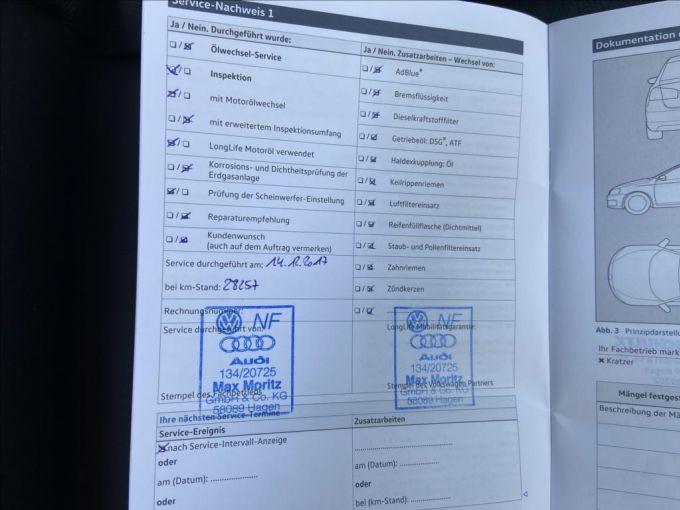 Service-Nachweis 1
Ja / Nein. Durchgeführt wurde:
Ölwechsel-Service
Inspektion
mit Motorölwechsel
mit erweitertem Inspektionsumfang
LongLife Motoröl verwendet
Korrosions- und Dichtheitsprüfung der
Erdgasanlage
Prüfung der Scheinwerfer-Einstellung
Reparaturempfehlung
Kundenwunsch
(auch auf dem Auftrag vermerken)
Service durchgeführt am: 14.12.2017
bei km-Stand: 28257
Rechnungsnummer:
Service durchgeführt von:
NF
Audi
134/20725
Max Moritz
GmbH & Co. KG
58089 Hagen
Stempel des Fachbetriebs
Ja / Nein. Zusatzarbeiten – Wechsel von:
AdBlue®
Bremsflüssigkeit
Dieselkraftstofffilter
Getriebeöl: DSG®, ATF
Haldexkupplung: Öl
Keilrippenriemen
Luftfiltereinsatz
Reifenfüllflasche (Dichtmittel)
Staub- und Pollenfiltereinsatz
Zahnriemen
Zündkerzen
LongLife Mobilitätsgarantie:
NF
Audi
134/20725
Max Moritz
GmbH & Co. KG
58089 Hagen
Stempel des Volkswagen Partners
Ihre nächsten Service-Termine
Service-Ereignis
nach Service-Intervall-Anzeige
oder
am (Datum): ....................
oder
Zusatzarbeiten
am (Datum): ................
oder
bei (km-Stand): .............
Dokumentation
Abb. 3 Prinzipdarstellu
Ihr Fachbetrieb mark
× Kratzer
Mängel festgest
Beschreibung der Mä